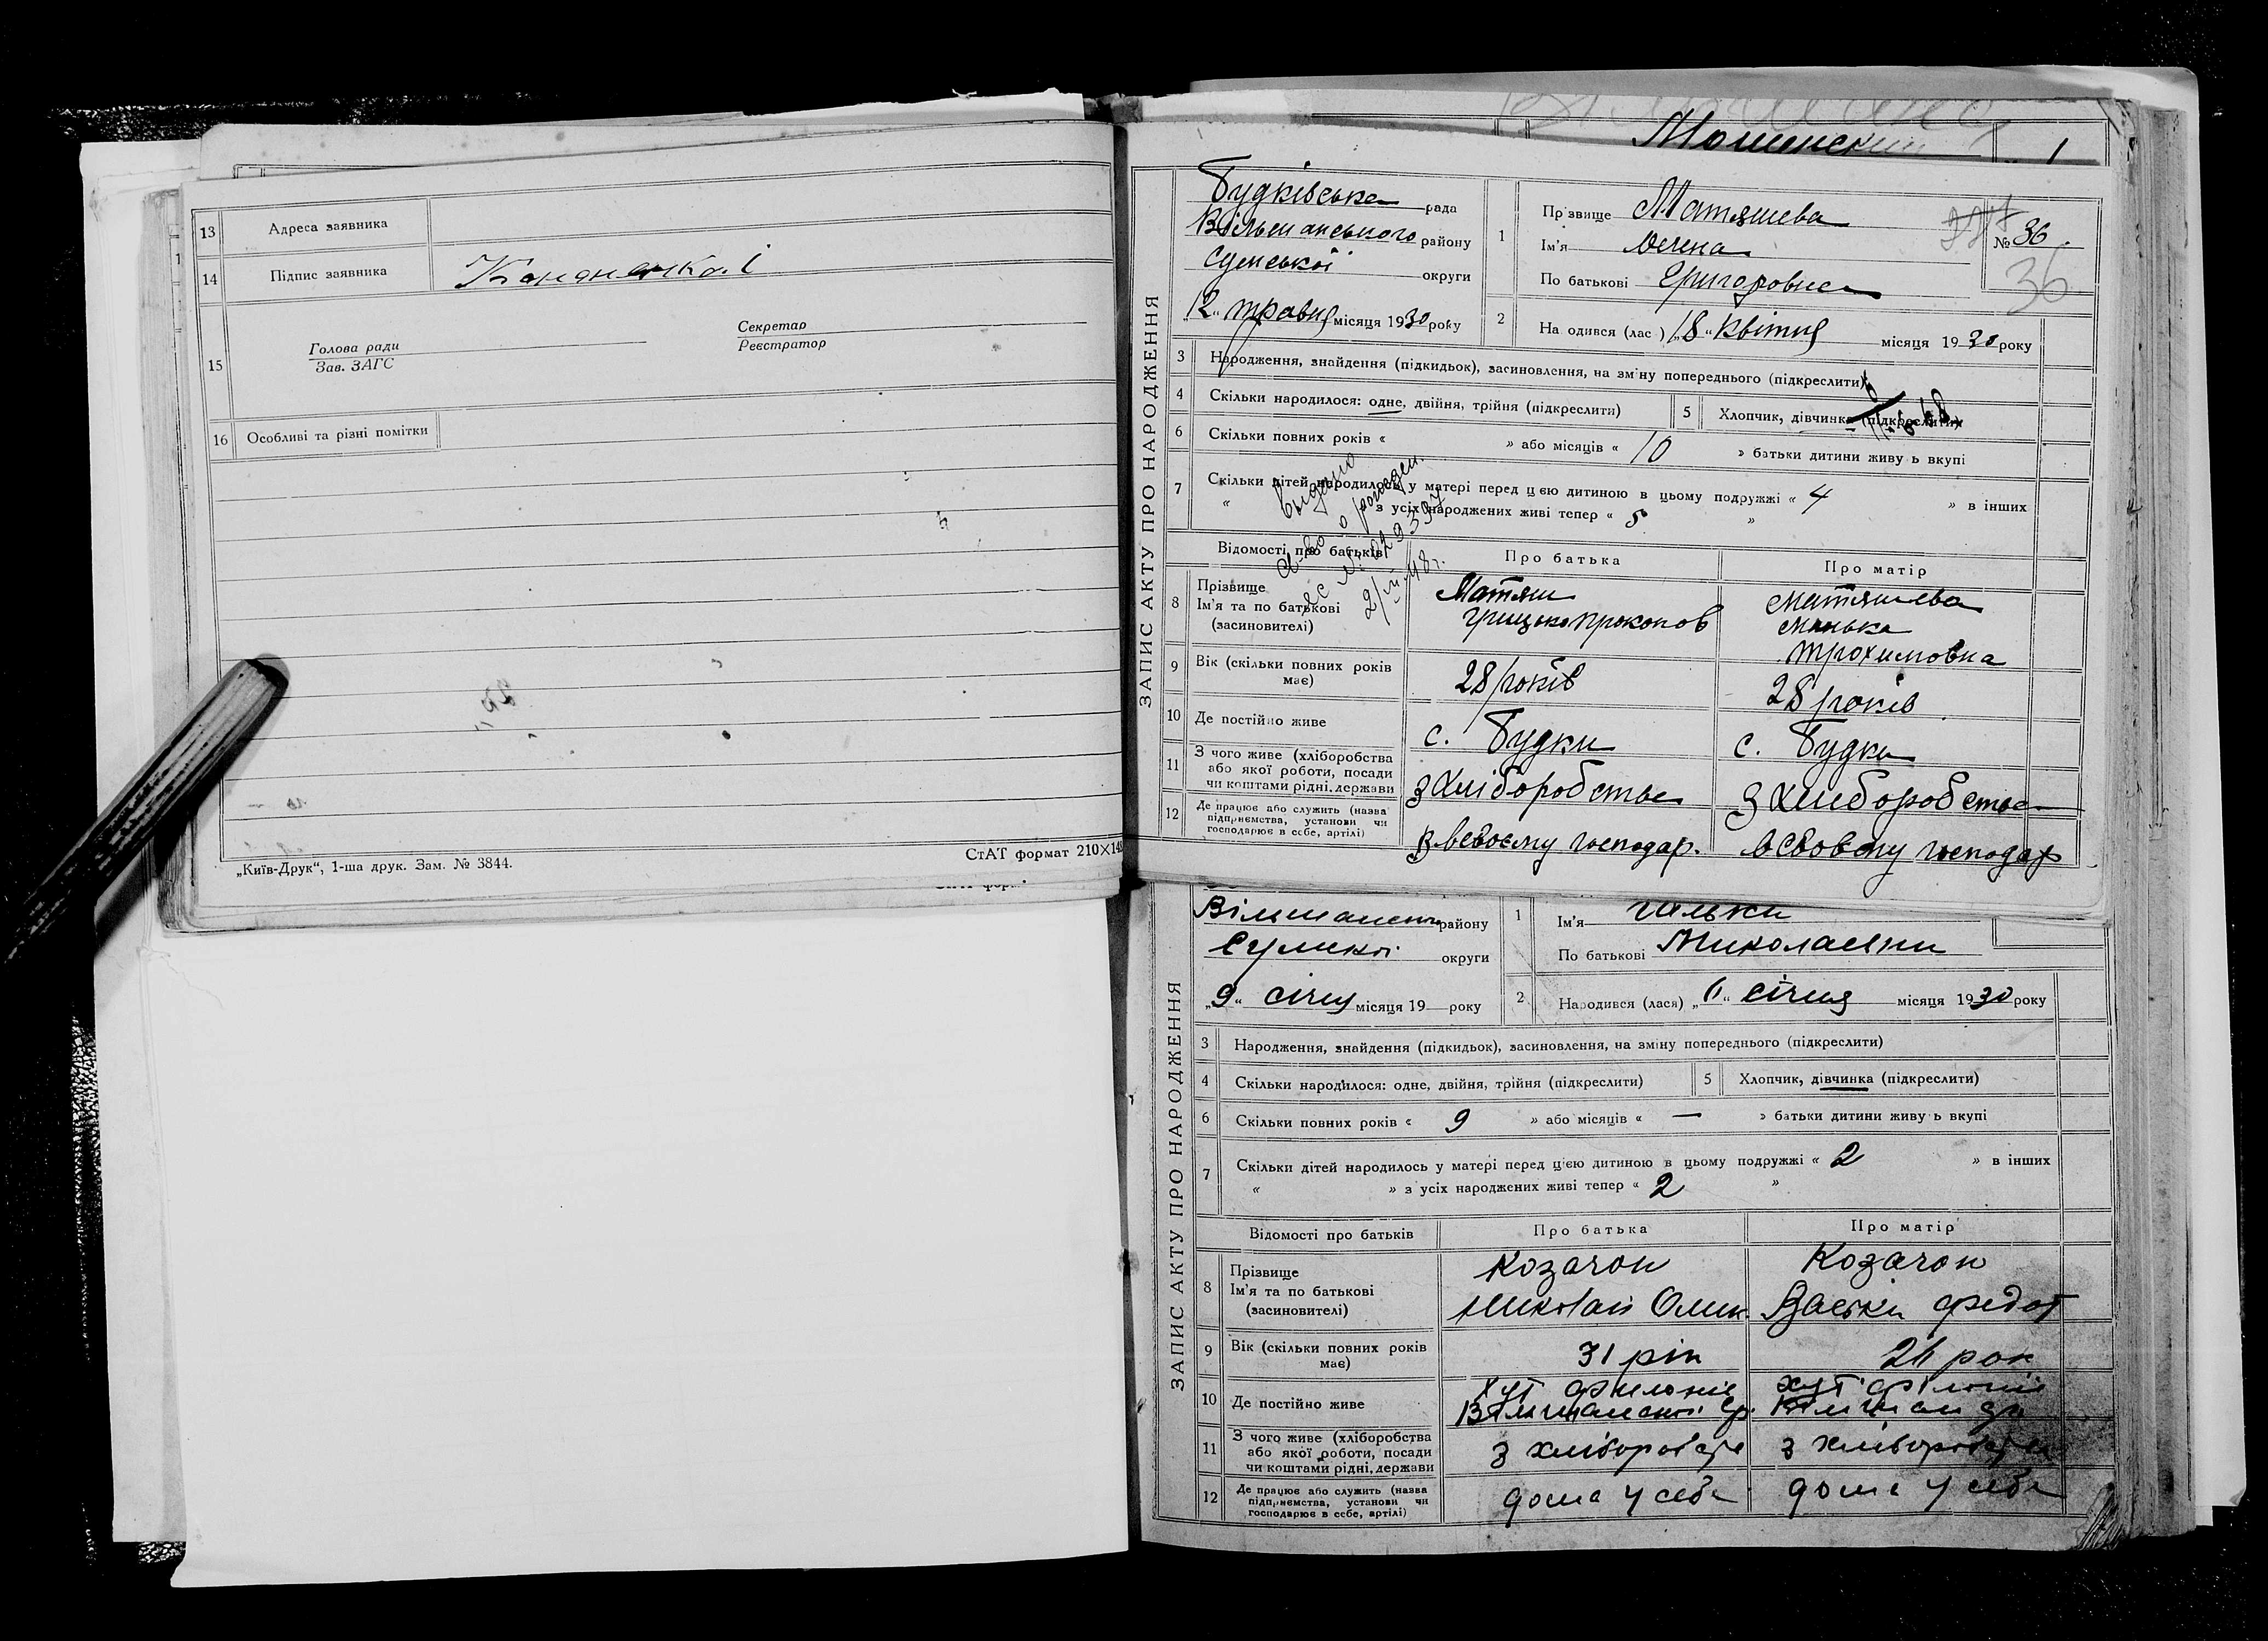 13 Адреса заявника
14 Підпис заявника
15 Голова ради
Зав. ЗАГС
Секретар
Реєстратор
16 Особливі та різні помітки
„Київ-Друк“, 1-ша друк. Зам. № 3844.
СтАТ формат 210×148
ЗАПИС АКТУ ПРО НАРОДЖЕННЯ
Будківська рада
Вільшанського району
Сумської округи
„12“ травня місяця 1930 року
1 Прізвище Матяшева
Ім'я
По батькові Григоровна
№ 36.
36
2 Народився (лас ) „18“ квітня місяця 1930 року
3 Народження, знайдення (підкидьок), засиновлення, на зміну попереднього (підкреслити)
4 Скільки народилося: одне, двійня, трійня (підкреслити)
5 Хлопчик, дівчинка (підкреслити)
6 Скільки повних років « » або місяців « 10 » батьки дитини живу ь вкупі
7 Скільки дітей народилось у матері перед цією дитиною в цьому подружжі « 4 » в інших
« » з усіх народжених живі тепер « 5 »
Відомості про батьків Про батька Про матір
8 Прізвище
Ім'я та по батькові
(засиновителі)
Матяш
Грицько Прокопов
Матяшева
Манька
Трохимовна
9 Вік (скільки повних років має) 28 років 28 років
10 Де постійно живе с. Будки с. Будки
11 З чого живе (хліборобства
або якої роботи, посади
чи коштами рідні, держави
з хліборобства з хліборобства
12 Де працює або служить (назва
підприємства, установи чи
господарює в себе, артілі)
в всвоєму господар. в свовму господар
Видано
св-во о рожден.
ЗАПИС АКТУ ПРО НАРОДЖЕННЯ
району
округи
„9“ січня місяця 19 року
1 Ім'я Гальки
По батькові Миколаєвни
2 Народився (лася) січня місяця 1930 року
3 Народження, знайдення (підкидьок), засиновлення, на зміну попереднього (підкреслити)
4 Скільки народилося: одне, двійня, трійня (підкреслити)
5 Хлопчик, дівчинка (підкреслити)
6 Скільки повних років « 9 » або місяців « — » батьки дитини живу ь вкупі
7 Скільки дітей народилось у матері перед цією дитиною в цьому подружжі « 2 » в інших
« » з усіх народжених живі тепер « 2 »
Відомості про батьків Про батька Про матір
8 Прізвище
Ім'я та по батькові
(засиновителі)
Козачок
Николай Омик.
Козачок
Васьки Федот
9 Вік (скільки повних років має) 31 рік
10 Де постійно живе
11 З чого живе (хліборобства
або якої роботи, посади
чи коштами рідні, держави
12 Де працює або служить (назва
підприємства, установи чи
господарює в себе, артілі)
дома у себе дома у себе